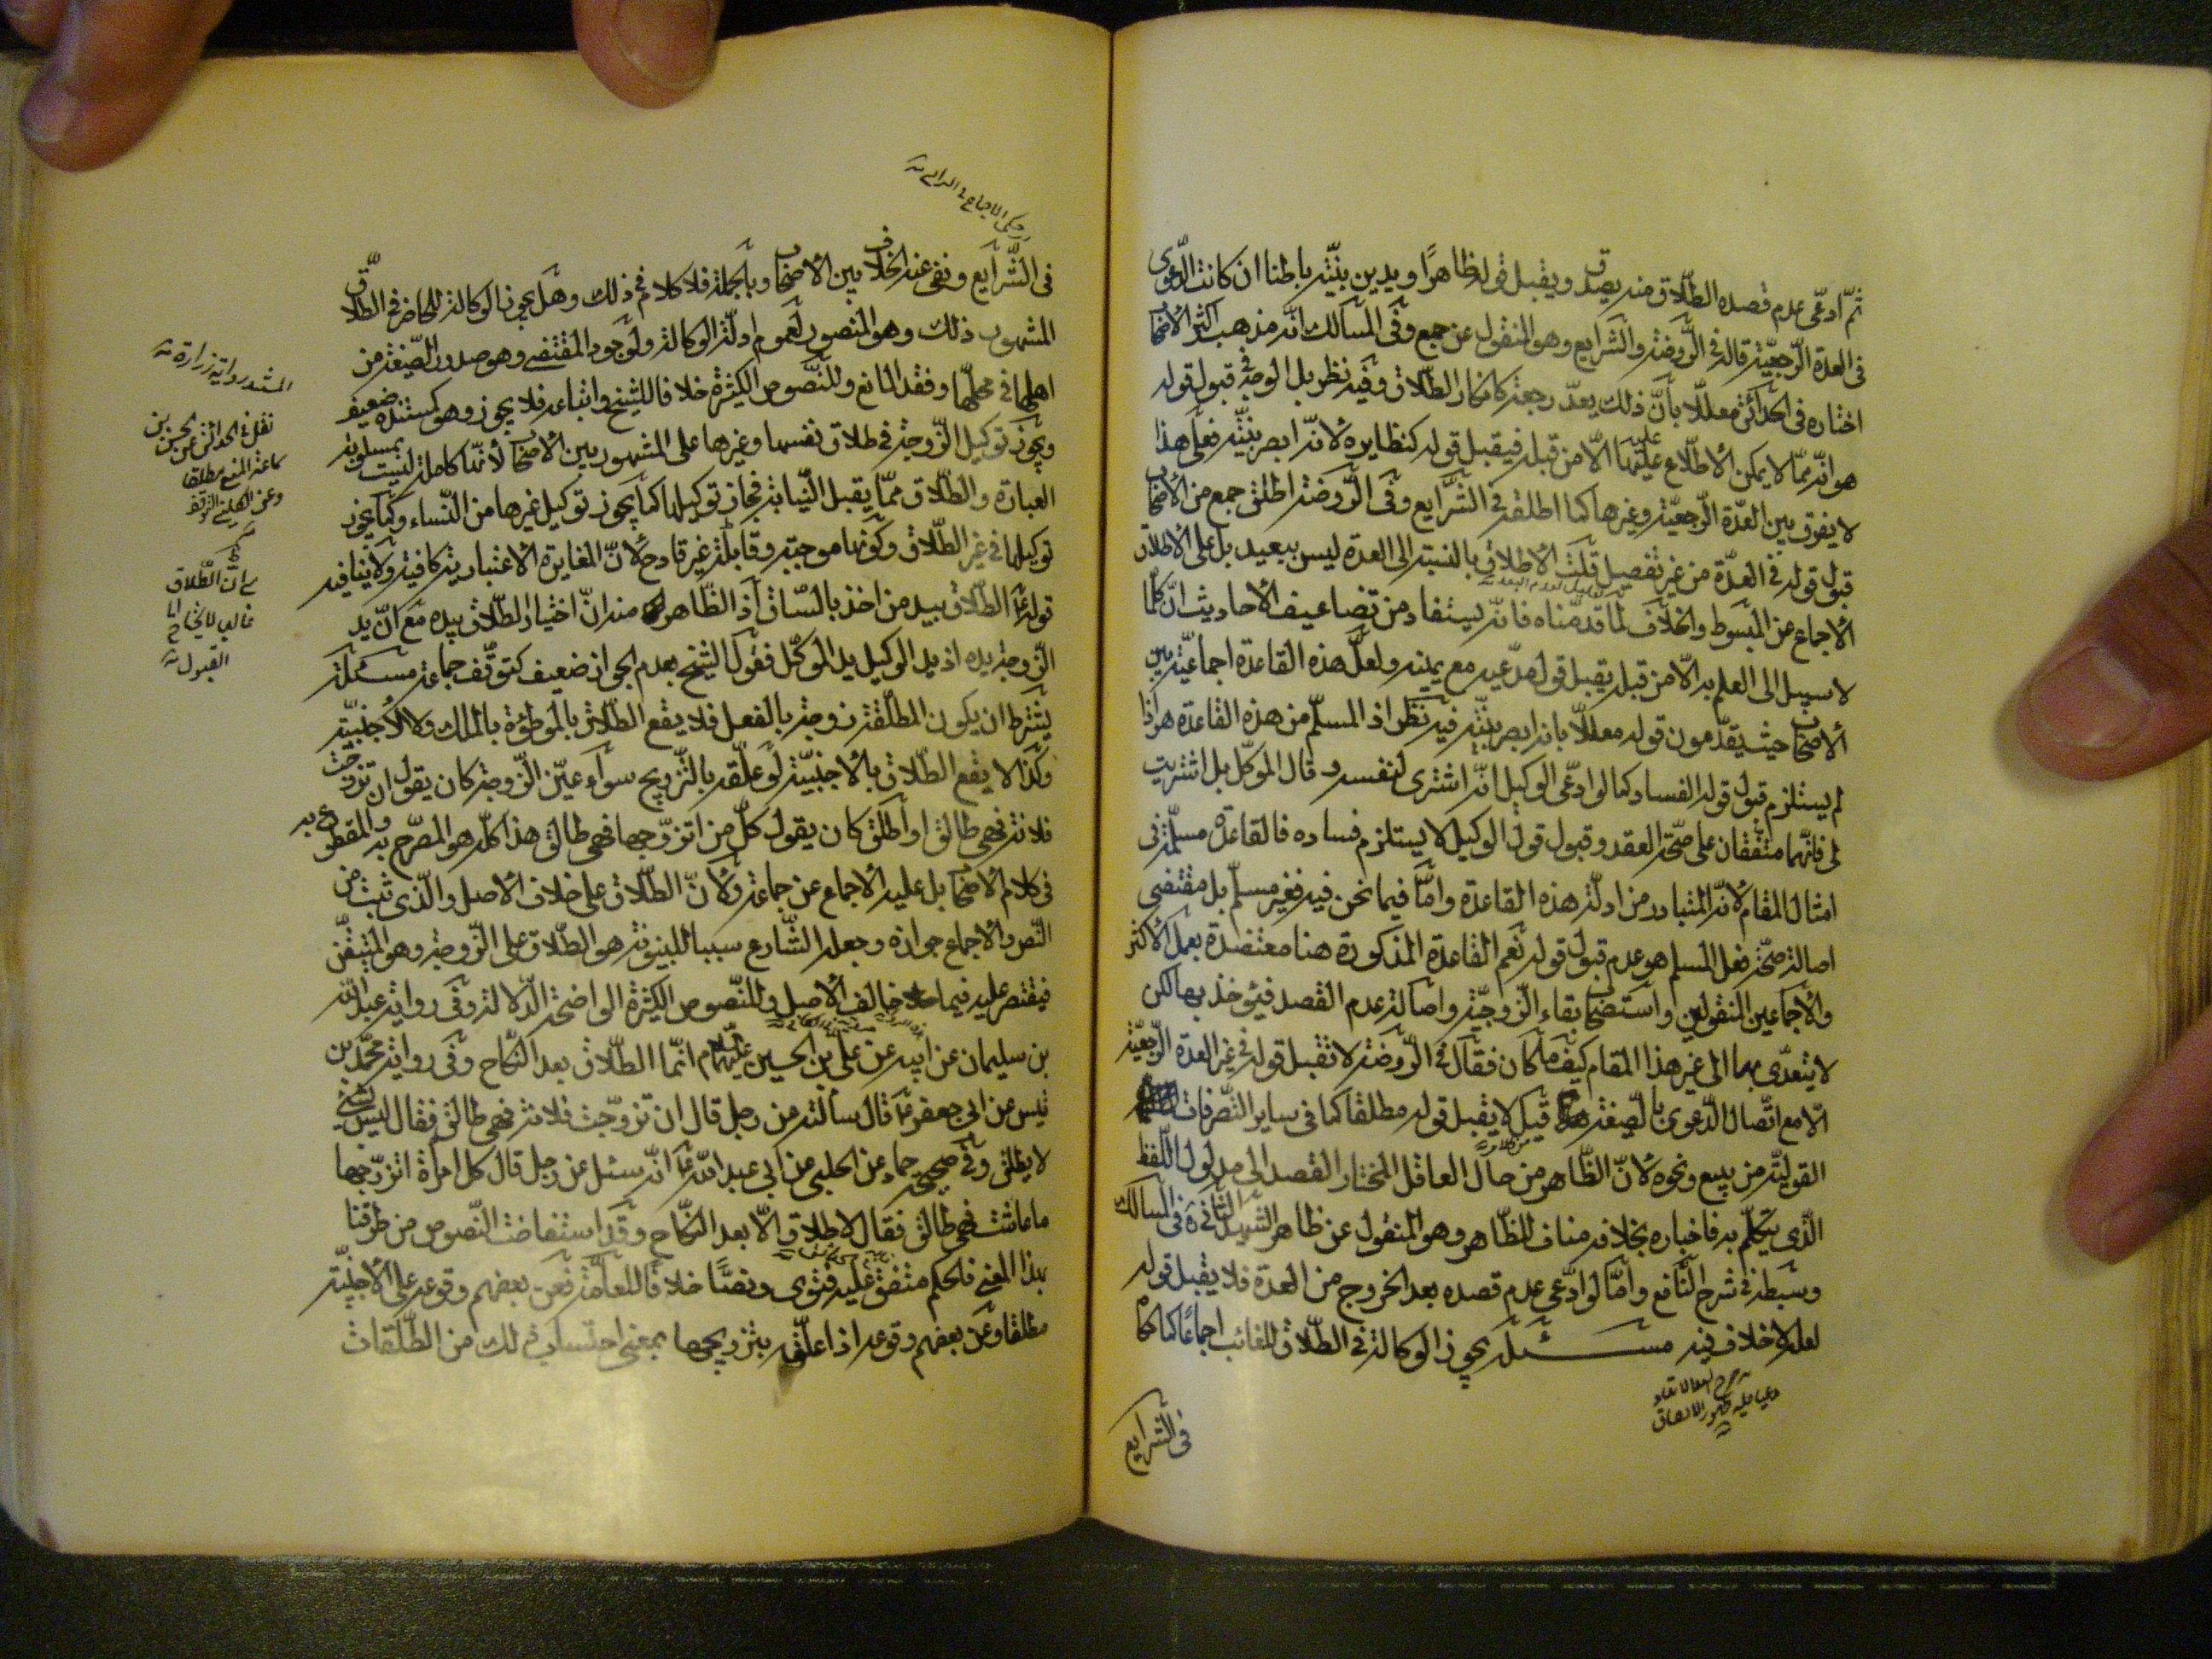 ثمّ ادعّى عدم قصده الطّلاق منه يصدق ويقبل قوله ظاهرًا ويدين بنيّته باطنا ان كانت الدّعوى
فى العدة الرّجعيّة قاله فى الرّوضة والشّرايع وهو المنقول عن جمع وفى المسالك انّه مذهب اكثر الأصحاب
اختاره فى الحدائق معلّلا بأنّ ذلك يعدّ رجعة كانكار الطّلاق وفيه نظر بل الوجه فى قبول قوله
هو انّه ممّا لا يمكن الاطّلاع عليه الّا من قبله فيقبل قوله كنظايره لانّه ابصر بنيّته فعلى هذا
لا يفرق بين العدّة الرّجعيّة وغيرها كما اطلقه فى الشّرايع وفى الرّوضة اطلق جمع من الأصحاب
قبول قوله فى العدّة من غير تفصيل قلت الاطلاق بالنسبة الى العدة ليس ببعيد بل على الاطلاق
الاجماع عن المبسوط والخلاف لما قدمّناه فانّه يستفاد من تضاعيف الاحاديث انّ كلّما
لا سبيل الى العلم به الّا من قبله يقبل قول مدّعيه مع يمينه ولعلّ هذه القاعدة اجماعيّة بين
الأصحاب حيث يقدّمون قوله معلّلا بانه ابصر بنيّته فيه نظر اذ المسلّم من هذه القاعدة هو اذا
لم يستلزم قبول قوله الفساد كما لو ادّعى الوكيل انّه اشترى لنفسه و قال الموكّل بل اشتريت
لى فانّهما متفّقان على صحّة العقد وقبول قول الوكيل لا يستلزم فساده فالقاعدة مسلّمة فى
امثال المقام لانّه المتبادر من ادلّة هذه القاعدة وامّا فيما نحن فيه فغير مسلّم بل مقتضى
اصالة صحّة فعل المسلم هو عدم قبول قوله نعم القاعدة المذكورة هنا معتضدة بعمل الاكثر
والاجماعين المنقولين واستصحاب بقاء الزّوجيّة واصالة عدم القصد فيؤخذ بها لكن
لا يتعدّى بهما الى غير هذا المقام كيف ما كان فقال فى الرّوضة لا تقبل قوله فى غير العدة الرّجعيّة
الّا مع اتّصال الدّعوى بالصّيغة قيل لا يقبل قوله مطلقا كما فى ساير التّصرفات
القوليّة من بيع ونحوه لانّ الظّاهر من حال العاقل المختار القصد الى مدلول اللّفظ
الّذى يتكلّم به فاخباره بخلافه مناف للظّاهر وهو المنقول عن ظاهر الشهيد الثّانى فى المسالك
وسبطه فى شرح النّافع وامّا لو ادّعى عدم قصده بعد الخروج من العدة فلا يقبل قوله
لعله لا خلاف فيه مسئلة يجوز الوكالة فى الطّلاق للغائب اجماعًا كما
فى الشرايع
فى الشّرايع ونفى عنه الخلاف بين الأصحاب وبالجملة فلا كلام فى ذلك وهل يجوز الوكالة للحاضر فى الطلاق
المشهور ذلك وهو المنصور لعموم ادلّة الوكالة ولوجود المقتضى وهو صدور الصّيغة من
اهلها فى محلّها وفقد المانع وللنّصوص الكثيرة خلافا للشيخ واتباعه فلا يجوز وهو كمستنده ضعيف
ويجوز توكيل الزّوجة فى طلاق نفسها وغيرها على المشهور بين الأصحاب لأنّها كاملة ليست بمسلوبة
العبارة والطّلاق ممّا يقبل النّيابة فجاز توكيلها كما يجوز توكيل غيرها من النّساء وكما يجوز
توكيلها فى غير الطّلاق وكونها موجبة وقابلة غير قادح لانّ المغايرة الاعتبارية كافية ولا ينافيه
قوله الطّلاق بيد من اخذ بالسّاق اذ الظّاهر منه انّ اختيار الطّلاق بيده مع انّ يد
الزّوجة يده اذ يد الوكيل يد الموكّل فقول الشيخ بعدم الجواز ضعيف كتوقّف جماعة مسئلة
يشترط ان يكون المطلّقة زوجة بالفعل فلا يقع الطّلاق بالموطوءة بالملك ولا الأجنبيّة
وكذا لا يقع الطّلاق بالأجنبيّة لو علّقه بالتّزويج سواء عيّن الزّوجة كان يقول ان تزوّجت
فلانة فهى طالق او أطلق كان يقول كلّ من اتزوّجها فهى طالق هذا كلّه هو المصرّح به والمقطوع به
فى كلام الأصحاب بل عليه الاجماع عن جماعة ولأنّ الطّلاق على خلاف الاصل والّذى ثبت من
النّص والاجماع جوازه وجعله الشّارع سببا للبينونة هو الطّلاق على الزّوجة وهو المتيقّن
فيقتصر عليه فيما خالف الأصل وللنّصوص الكثيرة الواضحة الدّلالة وفى رواية عبد الله
بن سليمان عن ابيه عن علىّ بن الحسين عليهما السّلام انّما الطّلاق بعد النّكاح وفى رواية محمّد بن
قيس عن ابى جعفر قال سألته من رجل قال ان تزوّجت فلانة فهى طالق فقال ليس بشئ
لا يطلق وفى صحيحة حماد عن الحلبى من ابى عبد الله انّه سئل عن رجل قال كل امرأة اتزوّجها
ما عاشت فهى طالق فقال لا طلاق الّا بعد النّكاح وقد استفاضت النّصوص من طرقنا
بهذا المعنى فالحكم متفق عليه فتوى ونصًّا خلافا للعامّة فعن بعضهم وقوعه على الأجنبيّة
مطلقا وعن بعضهم وقوعه اذا علّقه بتزويجها بمعنى احتساب ذلك من الطّلقات
رواية زرارة
نقله فى الحدائق عن
جماعة المنع مطلقا
انّ الطّلاق
القبول